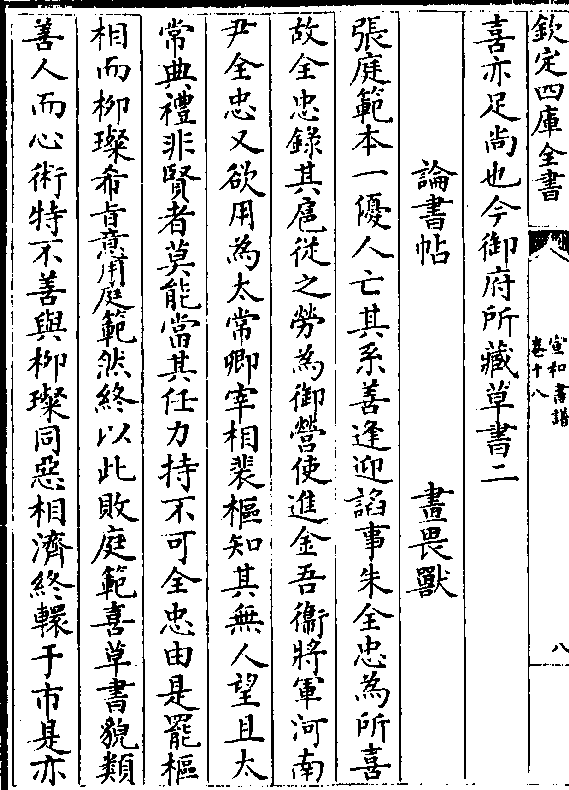 欽定四庫全書
宣和書譜
卷十八
八
喜亦足尚也今御府所藏草書二
論書帖 畫畏獸
張庭範本一優人亡其系善逢迎諂事朱全忠為所喜
故全忠錄其扈從之勞為御營使進金吾衞將軍河南
尹全忠又欲用為太常卿宰相裴樞知其無人望且太
常典禮非賢者莫能當其任力持不可全忠由是罷樞
相而柳璨希㫖意用庭範然終以此敗庭範喜草書貌類
善人而心術特不善與柳璨同惡相濟終轘于市是亦